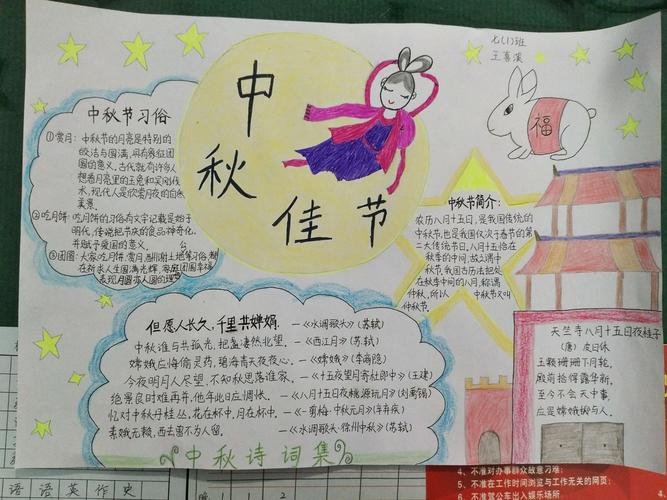 七(1)班
王喜溪
中秋佳节
福
中秋节习俗
①赏月：中秋节的月亮是特别的
皎洁与圆满，所有象征团
圆的意义。古代就有许多人
想看月亮里的玉兔和吴刚伐
木，现代人是欣赏月夜的自然
美景。
②吃月饼：吃月饼的习俗有文字记载是始于
明代，传说把节庆的食品神奇化，
并赋予爱国的意义。
③团圆：大家吃月饼、赏月、感谢土地等俗，制
在祈求人生圆满光辉，家庭团圆幸福
表现月圆亦人圆的
中秋节简介：
农历八月十五日，是我国传统的
中秋节，也是我国仅次于春节的第
二大传统节日，八月十五恰在
秋季的中间，故之谓中
秋节，我国古历法把处
在秋季中间的八月，称谓
仲秋，所以 中秋节又叫
仲秋节。
但愿人长久，千里共婵娟。—《水调歌头》（苏轼）
中秋谁与共孤光，把盏凄然北望。—《西江月》（苏轼）
嫦娥应悔偷灵药，碧海青天夜夜心。—《嫦娥》（李商隐）
今夜明月人尽望，不知秋思落谁家。—《十五夜望月寄杜郎中》（王建）
绝景良时难再并，他年此日应惆怅。—《八月十五日夜桃源玩月》（刘禹锡）
忆对中秋丹桂丛，花在杯中，月在杯中。—《一剪梅·中秋元月》（辛弃疾）
素娥无赖，西去曾不为人留。—《水调歌头·徐州中秋》（苏轼）
中秋诗词集
天竺寺八月十五日夜桂子
（唐）皮日休
玉颗珊珊下月轮，
殿前拾得露华新，
至今不会天中事，
应是嫦娥掷与人。
语 语 英 作 史
晚 1 1 2
4、不准对办事群众故意刁难；
5、不准在工作时间浏览与工作无关的网页；
6、不准驾公车出入娱乐场所。